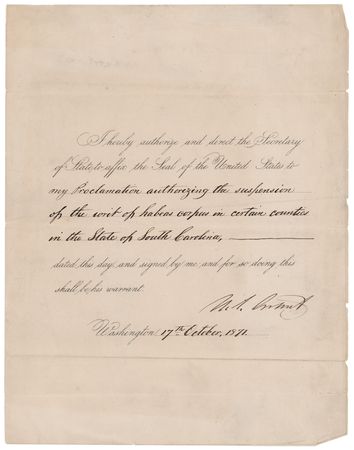 I hereby authorize and direct the Secretary
of State to affix the Seal of the United States to
my Proclamation authorizing the suspension
of the writ of habeas corpus in certain counties
in the State of South Carolina,
dated this day and signed by me, and for so doing this
shall be his warrant.
U. S. Grant
Washington 17th October, 1871.